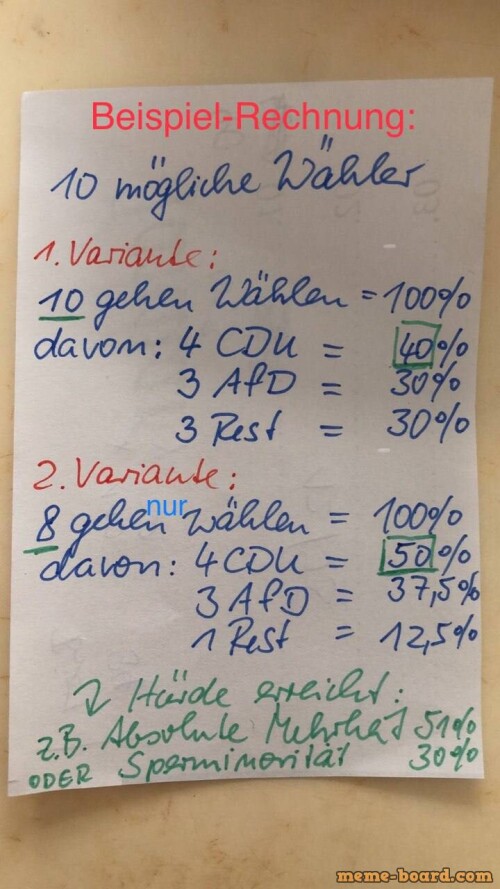 Beispiel-Rechnung:
10 mögliche Wähler
1. Variante:
10 gehen Wählen = 100%
davon: 4 CDU = 40%
3 AfD = 30%
3 Rest = 30%
2. Variante:
8 gehen nur Wählen = 100%
davon: 4 CDU = 50%
3 AfD = 37,5%
1 Rest = 12,5%
↳ Hürde erreicht:
z.B. Absolute Mehrheit 51%
ODER Sperminorität 30%
meme-board.com